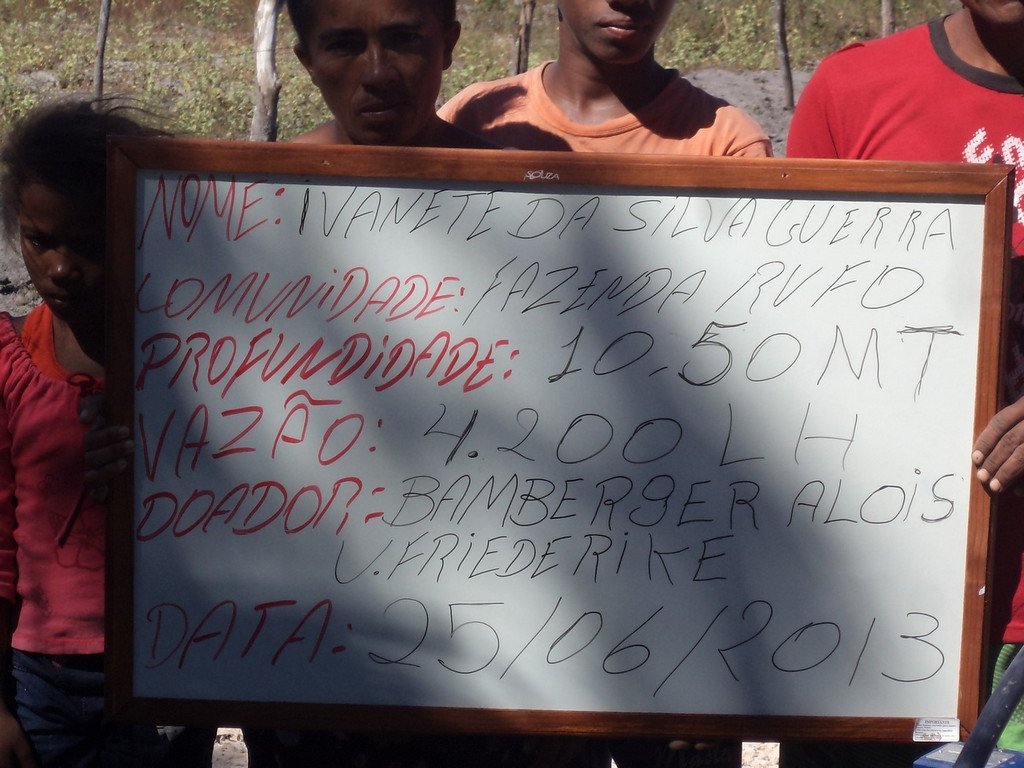 SOUZA
NOME: IVANETE DA SILVA GUERRA
COMUNIDADE: FAZENDA RUFO
PROFUNDIDADE: 10.50 MT
VAZÃO: 4.200 LH
DOADOR:- BAMBERGER ALOIS
U. FRIEDERIKE
DATA: 25/06/2013